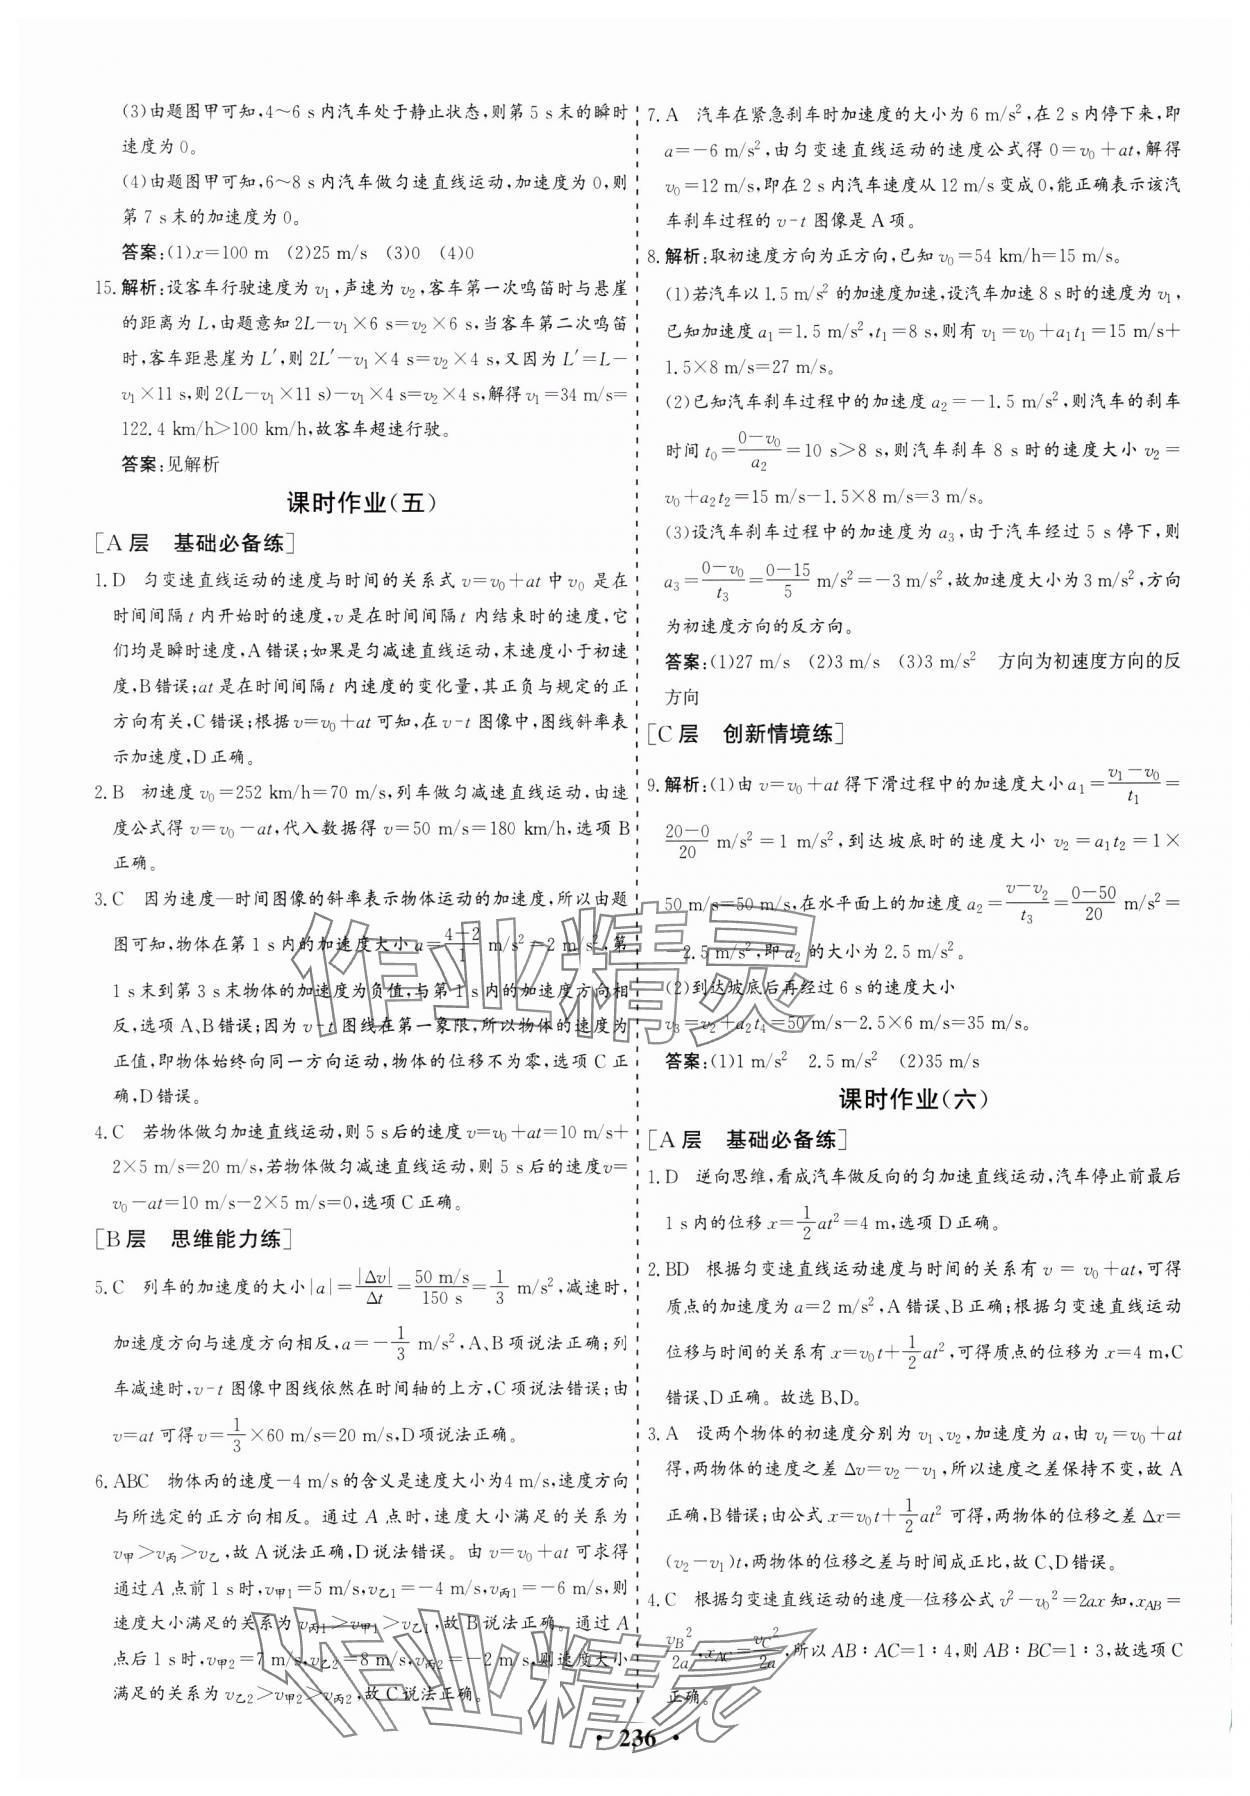 (3)由题图甲可知,4～6 s内汽车处于静止状态,则第5 s末的瞬时
速度为0。
(4)由题图甲可知,6～8 s内汽车做匀速直线运动,加速度为0,则
第7 s末的加速度为0。
答案:(1)x=100 m (2)25 m/s (3)0 (4)0
15.解析:设客车行驶速度为v₁,声速为v₂,客车第一次鸣笛时与悬崖
的距离为L,由题意知2L-v₁×6 s=v₂×6 s,当客车第二次鸣笛
时,客车距悬崖为L′,则2L′-v₁×4 s=v₂×4 s,又因为L′=L-
v₁×11 s,则2(L-v₁×11 s)-v₁×4 s=v₂×4 s,解得v₁=34 m/s=
122.4 km/h>100 km/h,故客车超速行驶。
答案:见解析
课时作业(五)
[A层 基础必备练]
1.D 匀变速直线运动的速度与时间的关系式v=v₀+at中v₀是在
时间间隔t内开始时的速度,v是在时间间隔t内结束时的速度,它
们均是瞬时速度,A错误;如果是匀减速直线运动,末速度小于初速
度,B错误;at是在时间间隔t内速度的变化量,其正负与规定的正
方向有关,C错误;根据v=v₀+at可知,在v-t图像中,图线斜率表
示加速度,D正确。
2.B 初速度v₀=252 km/h=70 m/s,列车做匀减速直线运动,由速
度公式得v=v₀-at,代入数据得v=50 m/s=180 km/h,选项B
正确。
3.C 因为速度—时间图像的斜率表示物体运动的加速度,所以由题
图可知,物体在第1 s内的加速度大小a=(4-2)/1 m/s²=2 m/s²,第
1 s末到第3 s末物体的加速度为负值,与第1 s内的加速度方向相
反,选项A、B错误;因为v-t图线在第一象限,所以物体的速度为
正值,即物体始终向同一方向运动,物体的位移不为零,选项C正
确,D错误。
4.C 若物体做匀加速直线运动,则5 s后的速度v=v₀+at=10 m/s+
2×5 m/s=20 m/s,若物体做匀减速直线运动,则5 s后的速度v=
v₀-at=10 m/s-2×5 m/s=0,选项C正确。
[B层 思维能力练]
5.C 列车的加速度的大小|a|=|Δv|/Δt=50 m/s/150 s=1/3 m/s²,减速时,
加速度方向与速度方向相反,a=-1/3 m/s²,A、B项说法正确;列
车减速时,v-t图像中图线依然在时间轴的上方,C项说法错误;由
v=at可得v=1/3×60 m/s=20 m/s,D项说法正确。
6.ABC 物体丙的速度-4 m/s的含义是速度大小为4 m/s,速度方向
与所选定的正方向相反。通过A点时,速度大小满足的关系为
v甲>v丙>v乙,故A说法正确,D说法错误。由v=v₀+at可求得
通过A点前1 s时,v甲1=5 m/s,v乙1=-4 m/s,v丙1=-6 m/s,则
速度大小满足的关系为v丙1>v甲1>v乙1,故B说法正确。通过A
点后1 s时,v甲2=7 m/s,v乙2=8 m/s,v丙2=-2 m/s,则速度大小
满足的关系为v乙2>v甲2>v丙2,故C说法正确。
7.A 汽车在紧急刹车时加速度的大小为6 m/s²,在2 s内停下来,即
a=-6 m/s²,由匀变速直线运动的速度公式得0=v₀+at,解得
v₀=12 m/s,即在2 s内汽车速度从12 m/s变成0,能正确表示该汽
车刹车过程的v-t图像是A项。
8.解析:取初速度方向为正方向,已知v₀=54 km/h=15 m/s。
(1)若汽车以1.5 m/s²的加速度加速,设汽车加速8 s时的速度为v₁,
已知加速度a₁=1.5 m/s²,t₁=8 s,则有v₁=v₀+a₁t₁=15 m/s+
1.5×8 m/s=27 m/s。
(2)已知汽车刹车过程中的加速度a₂=-1.5 m/s²,则汽车的刹车
时间t₀=(0-v₀)/a₂=10 s>8 s,则汽车刹车8 s时的速度大小v₂=
v₀+a₂t₂=15 m/s-1.5×8 m/s=3 m/s。
(3)设汽车刹车过程中的加速度为a₃,由于汽车经过5 s停下,则
a₃=(0-v₀)/t₃=(0-15)/5 m/s²=-3 m/s²,故加速度大小为3 m/s²,方向
为初速度方向的反方向。
答案:(1)27 m/s (2)3 m/s (3)3 m/s² 方向为初速度方向的反
方向
[C层 创新情境练]
9.解析:(1)由v=v₀+at得下滑过程中的加速度大小a₁=(v₁-v₀)/t₁=
(20-0)/20 m/s²=1 m/s²,到达坡底时的速度大小v₂=a₁t₂=1×
50 m/s=50 m/s,在水平面上的加速度a₂=(v-v₂)/t₃=(0-50)/20 m/s²=
-2.5 m/s²,即a₂的大小为2.5 m/s²。
(2)到达坡底后再经过6 s的速度大小
v₃=v₂+a₂t₄=50 m/s-2.5×6 m/s=35 m/s。
答案:(1)1 m/s² 2.5 m/s² (2)35 m/s
课时作业(六)
[A层 基础必备练]
1.D 逆向思维,看成汽车做反向的匀加速直线运动,汽车停止前最后
1 s内的位移x=1/2at²=4 m,选项D正确。
2.BD 根据匀变速直线运动速度与时间的关系有v=v₀+at,可得
质点的加速度为a=2 m/s²,A错误、B正确;根据匀变速直线运动
位移与时间的关系有x=v₀t+1/2at²,可得质点的位移为x=4 m,C
错误、D正确。故选B、D。
3.A 设两个物体的初速度分别为v₁、v₂,加速度为a,由vₜ=v₀+at
得,两物体的速度之差Δv=v₂-v₁,所以速度之差保持不变,故A
正确,B错误;由公式x=v₀t+1/2at²可得,两物体的位移之差Δx=
(v₂-v₁)t,两物体的位移之差与时间成正比,故C、D错误。
4.C 根据匀变速直线运动的速度—位移公式v²-v₀²=2ax知,xAB=
vB²/2a,xAC=vC²/2a,所以AB∶AC=1∶4,则AB∶BC=1∶3,故选项C
正确。
作业精灵
作业精灵
· 236 ·